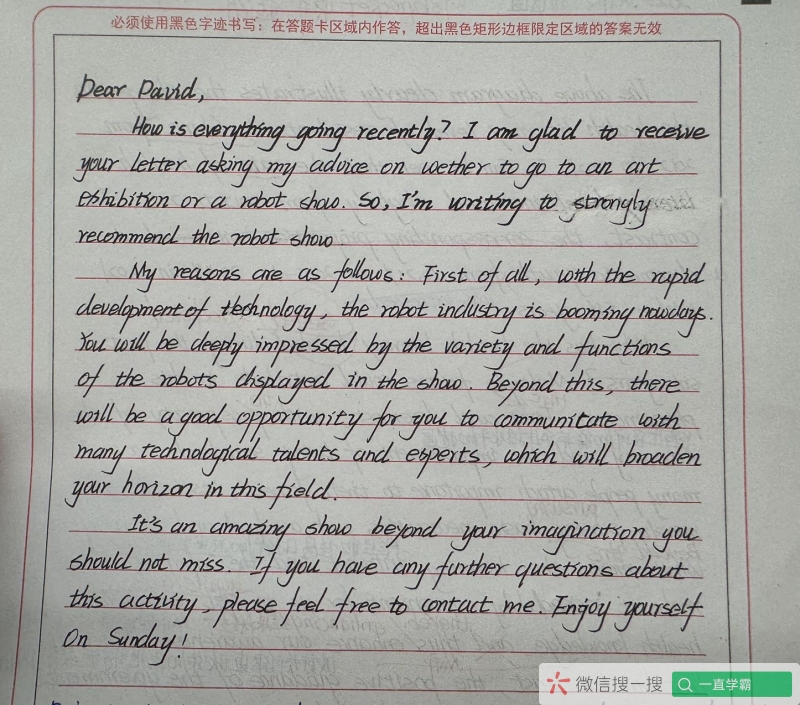 必须使用黑色字迹书写：在答题卡区域内作答，超出黑色矩形边框限定区域的答案无效
Dear David,
How is everything going recently? I am glad to receive
your letter asking my advice on wether to go to an art
exhibition or a robot show. So, I'm writing to strongly
recommend the robot show.
My reasons are as follows: First of all, with the rapid
development of technology, the robot industry is booming nowdays.
You will be deeply impressed by the variety and functions
of the robots displayed in the show. Beyond this, there
will be a good opportunity for you to communitate with
many technological talents and experts, which will broaden
your horizon in this field.
It's an amazing show beyond your imagination you
should not miss. If you have any further questions about
this activity, please feel free to contact me. Enjoy yourself
On Sunday!
微信搜一搜 一直学霸